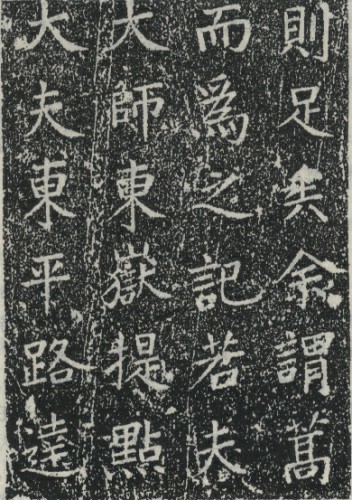 則足矣余謂蒿
而爲之記若夫
大師東嶽提點
大夫東平路達